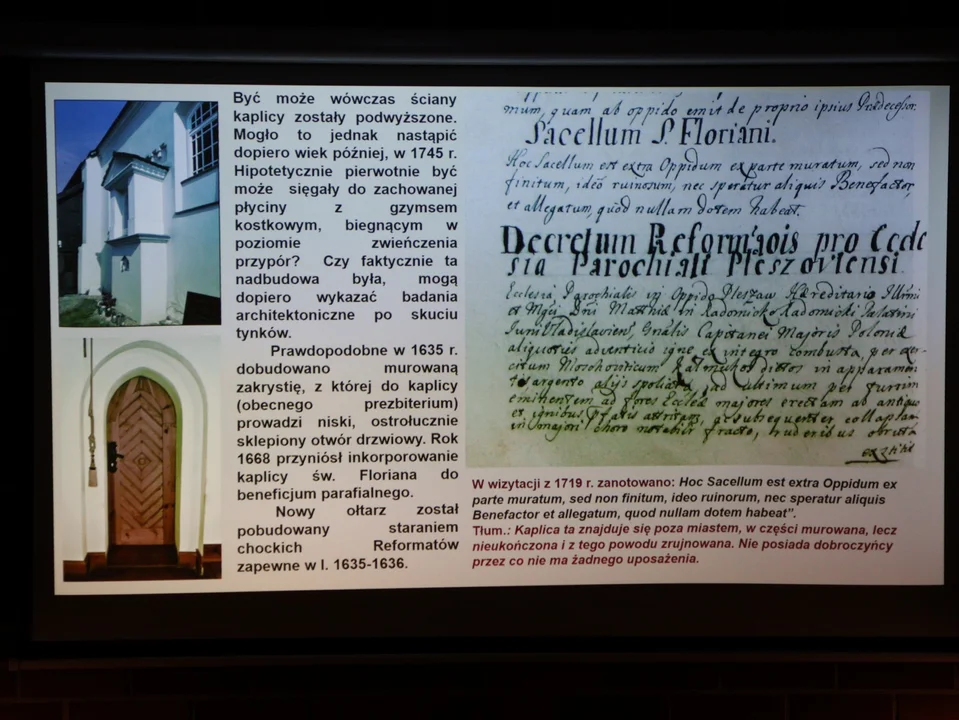 Być może wówczas ściany
kaplicy zostały podwyższone.
Mogło to jednak nastąpić
dopiero wiek później, w 1745 r.
Hipotetycznie pierwotnie być
może sięgały do zachowanej
płyciny z gzymsem
kostkowym, biegnącym w
poziomie zwieńczenia
przypór? Czy faktycznie ta
nadbudowa była, mogą
dopiero wykazać badania
architektoniczne po skuciu
tynków.
Prawdopodobne w 1635 r.
dobudowano murowaną
zakrystię, z której do kaplicy
(obecnego prezbiterium)
prowadzi niski, ostrołucznie
sklepiony otwór drzwiowy. Rok
1668 przyniósł inkorporowanie
kaplicy św. Floriana do
beneficjum parafialnego.
Nowy ołtarz został
pobudowany staraniem
chockich Reformatów
zapewne w l. 1635-1636.
mum, quam ab oppido emit de proprio ipsius Prædecessor.
Sacellum S. Floriani.
Hoc Sacellum est extra Oppidum ex parte muratum, sed non
finitum, ideò ruinosum, nec speratur aliquis Benefactor,
et allegatum, quod nullam dotem habeat.
Decretum pro
sia Parochiali Pleszoviensi.
Ecclesia Parochialis in Oppido Pleszow Hæreditario
et Dni in Radomicko Radomicki Palatini
Capitanei Majoris Poloniæ
adventicio igne ex integro combusta, per
in
argento alijs spoliata, ad ultimum per turrim
eminentem ad fores majores erectam ab
et ignibus attritam, ac subsequenter collaptam
in majori choro fracto, ruderibus
W wizytacji z 1719 r. zanotowano: Hoc Sacellum est extra Oppidum ex
parte muratum, sed non finitum, ideo ruinorum, nec speratur aliquis
Benefactor et allegatum, quod nullam dotem habeat”.
Tłum.: Kaplica ta znajduje się poza miastem, w części murowana, lecz
nieukończona i z tego powodu zrujnowana. Nie posiada dobroczyńcy
przez co nie ma żadnego uposażenia.